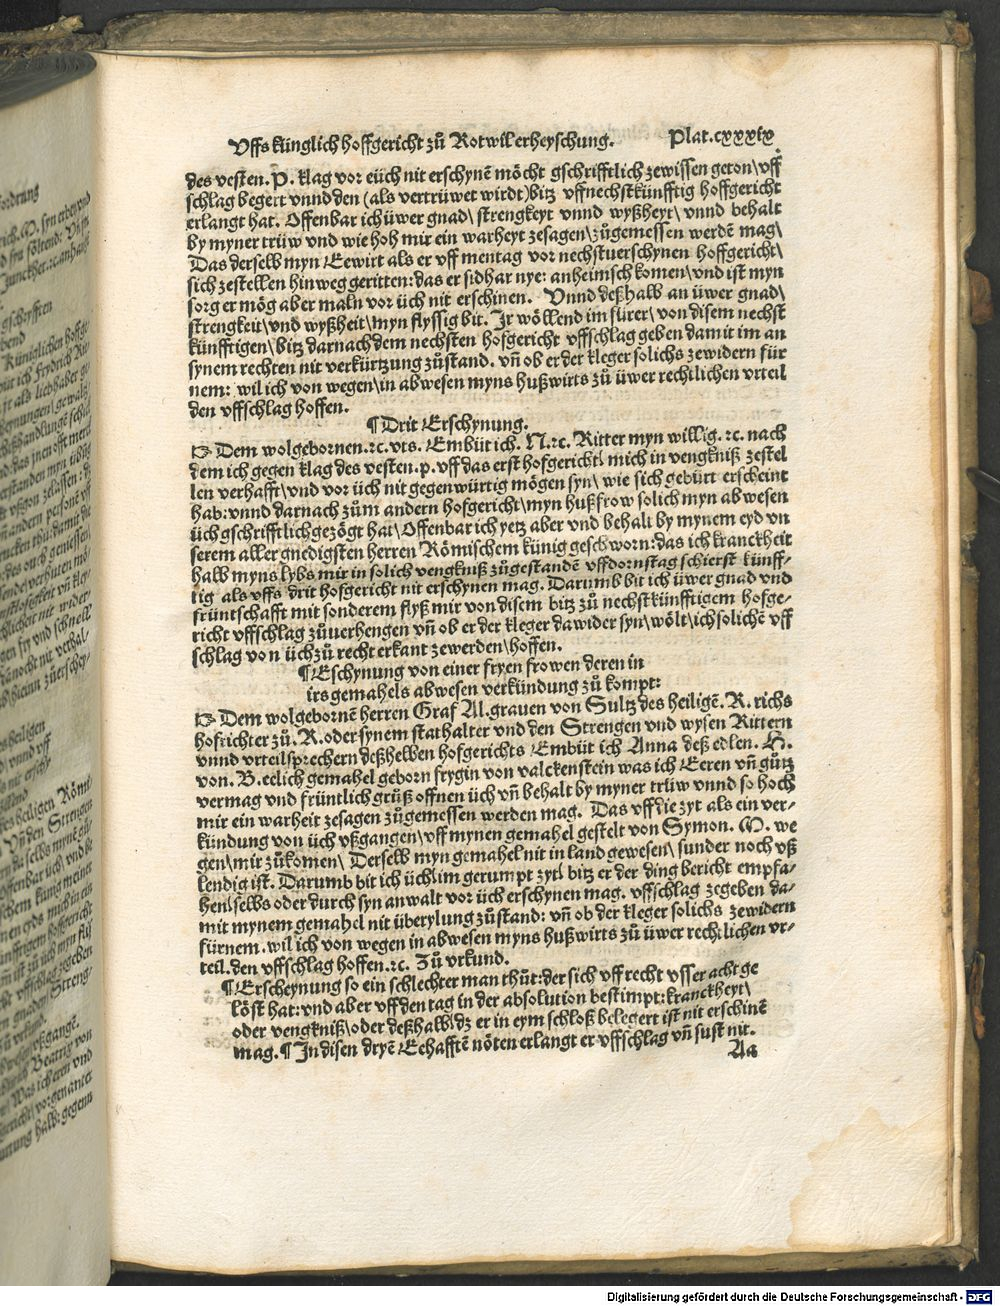 Uffs künglich hoffgericht zů Rotwil erheyschung. Plat.cxxxix
des vesten. P. klag vor eüch nit erschynē möcht gschrifftlich zewissen geton/ uff
schlag begert vnnd den (als vertrüwet wirdt) bitz vff nechstkünfftig hoffgericht
erlangt hat. Offenbar ich üwer gnad/ strengkeyt vnnd wyßheyt/ vnnd behalt
by myner trüw vnd wie hoh mir ein warheyt zesagen/ zůgemessen werdē mag/
Das derselb myn Eewirt als er vff mentag vor nechstuerschynen hoffgericht/
sich zestellen hinweg geritten: das er sidhar nye: anheimsch komen/ vnd ist myn
sorg er mög aber maln vor üch nit erschinen. Vnnd deßhalb an üwer gnad/
strengkeit/ vnd wyßheit/ myn flyssig bit. Ir wöllend im fürer/ von disem nechst
künfftigen/ bitz darnach dem nechsten hofgericht vffschlag geben damit im an
synem rechten nit verkürtzung zůstand. vñ ob er der kleger solichs zewidern für
nem: wil ich von wegen/ in abwesen myns hußwirts zů üwer rechtlichen vrteil
den vffschlag hoffen.
¶ Drit Erschynung.
☞ Dem wolgebornen.ꝛc. vts. Embüt ich. N.ꝛc. Ritter myn willig. ꝛc. nach
dem ich gegen klag des vesten. p. vff das erst hofgericht/ mich in vengkniß zestel
len verhafft/ vnd vor üch nit gegenwürtig mögen syn/ wie sich gebürt erscheint
hab: vnnd darnach zům andern hofgericht/ myn hußfrow solich myn abwesen
üch gschrifftlich gezögt hat/ Offenbar ich yetz aber vnd behalt by mynem eyd vn
serem aller gnedigsten herren Römischem künig geschworn: das ich kranckheit
halb myns lybs mir in solich vengkniß zůgestandē vff dornstag schierst künff-
tig als vffs drit hofgericht nit erschynen mag. Darumb bit ich üwer gnad vnd
früntschafft mit sonderem flyß mir von disem bitz zů nechstkünfftigem hofge-
richt vffschlag zůuerhengen vñ ob er der kleger dawider syn/ wölt/ ich solichē vff
schlag von üch zů recht erkant zewerden/ hoffen.
¶ Eschynung von einer fryen frowen deren in
irs gemahels abwesen verkündung zů kompt:
☞ Dem wolgebornē herren Graf Al. grauen von Sultz des heiligē. R. richs
hofrichter zů. R. oder synem stathalter vnd den Strengen vnd wysen Rittern
vnnd vrteilsprechern deßhelben hofgerichts Embüt ich Anna deß edlen. H.
von. B. eelich gemahel geborn frygin von valckenstein was ich Eeren vñ gůtz
vermag vnd früntlich grůß offnen üch vñ behalt by myner trüw vnnd so hoch
mir ein warheit zesagen zůgemessen werden mag. Das vff die zyt als ein ver-
kündung von üch vßgangen/ vff mynen gemahel gestelt von Symon. M. we
gen/ mir zůkomen/ Derselb myn gemahel nit in land gewesen/ sunder noch vß
lendig ist. Darumb bit ich üch/ im gerumpt zyt/ bitz er der ding bericht empfa-
hen/ selbs oder durch syn anwalt vor üch erschynen mag. vffschlag zegeben da-
mit mynem gemahel nit überylung zůstand: vñ ob der kleger solichs zewidern
fürnem. wil ich von wegen in abwesen myns hußwirts zů üwer rechtlichen vr-
teil. den vffschlag hoffen.ꝛc. Zů vrkund.
¶ Erscheynung so ein schlechter man thůt: der sich vff recht vsser acht ge
löst hat: vnd aber vff den tag in der absolution bestimpt: kranckheyt/
oder vengkniß/ oder deßhalb/ dz er in eym schloß belegert ist nit erschinē
mag. ¶ In disen dryē Eehafftē nöten erlangt er vffschlag vñ sust nit.
Aa
Digitalisierung gefördert durch die Deutsche Forschungsgemeinschaft - DFG